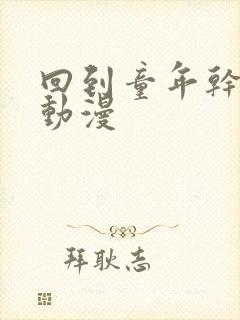 回到童年幹
動漫
拜耿志